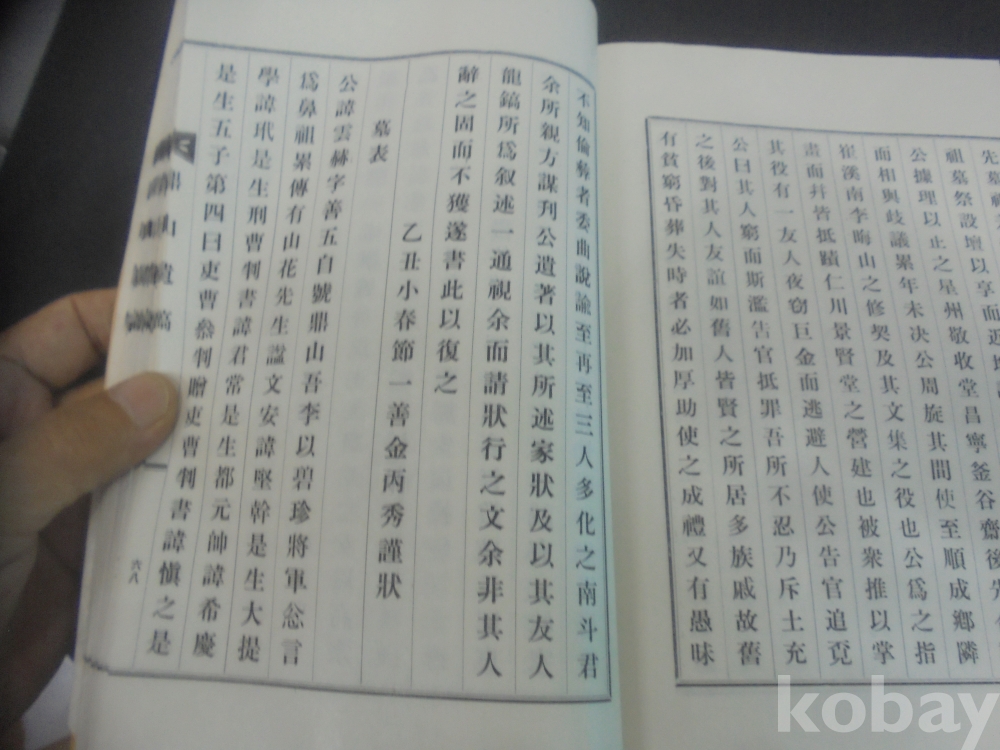 先墓
祖墓祭設壇以享而近
公據理以止之星州敬收堂昌寧釜谷齋後
面相與歧議累年未決公周旋其間使至順成鄉隣
崔溪南李晦山之修契及其文集之役也公爲之指
畫面井皆抵蹟仁川景賢堂之營建也被衆推以掌
其役有一友人夜窃巨金而逃避人使公告官追
公曰其人窮而斯濫告官抵罪吾所不忍乃斥土充
之後對其人友誼如舊人皆賢之所居多族戚故舊
有貧窮昏葬失時者必加厚助使之成禮又有愚昧
不知倫彜者委曲說諭至再至三人多化之南斗君
余所親方謀刋公遺著以其所述家狀及以其友人
龍鎬所爲叙述一通視余而請狀行之文余非其人
辭之固而不獲遂書此以復之
乙丑小春節一善金丙秀謹狀
墓表
公諱雲赫字善五自號鼎山吾李以碧珍將軍忩言
爲鼻祖累傳有山花先生諡文安諱堅幹是生大提
學諱玳是生刑曹判書諱君常是生都元帥諱希慶
是生五子第四曰吏曹叅判贈吏曹判書諱愼之是
鼎山遺稿
六八
kobay